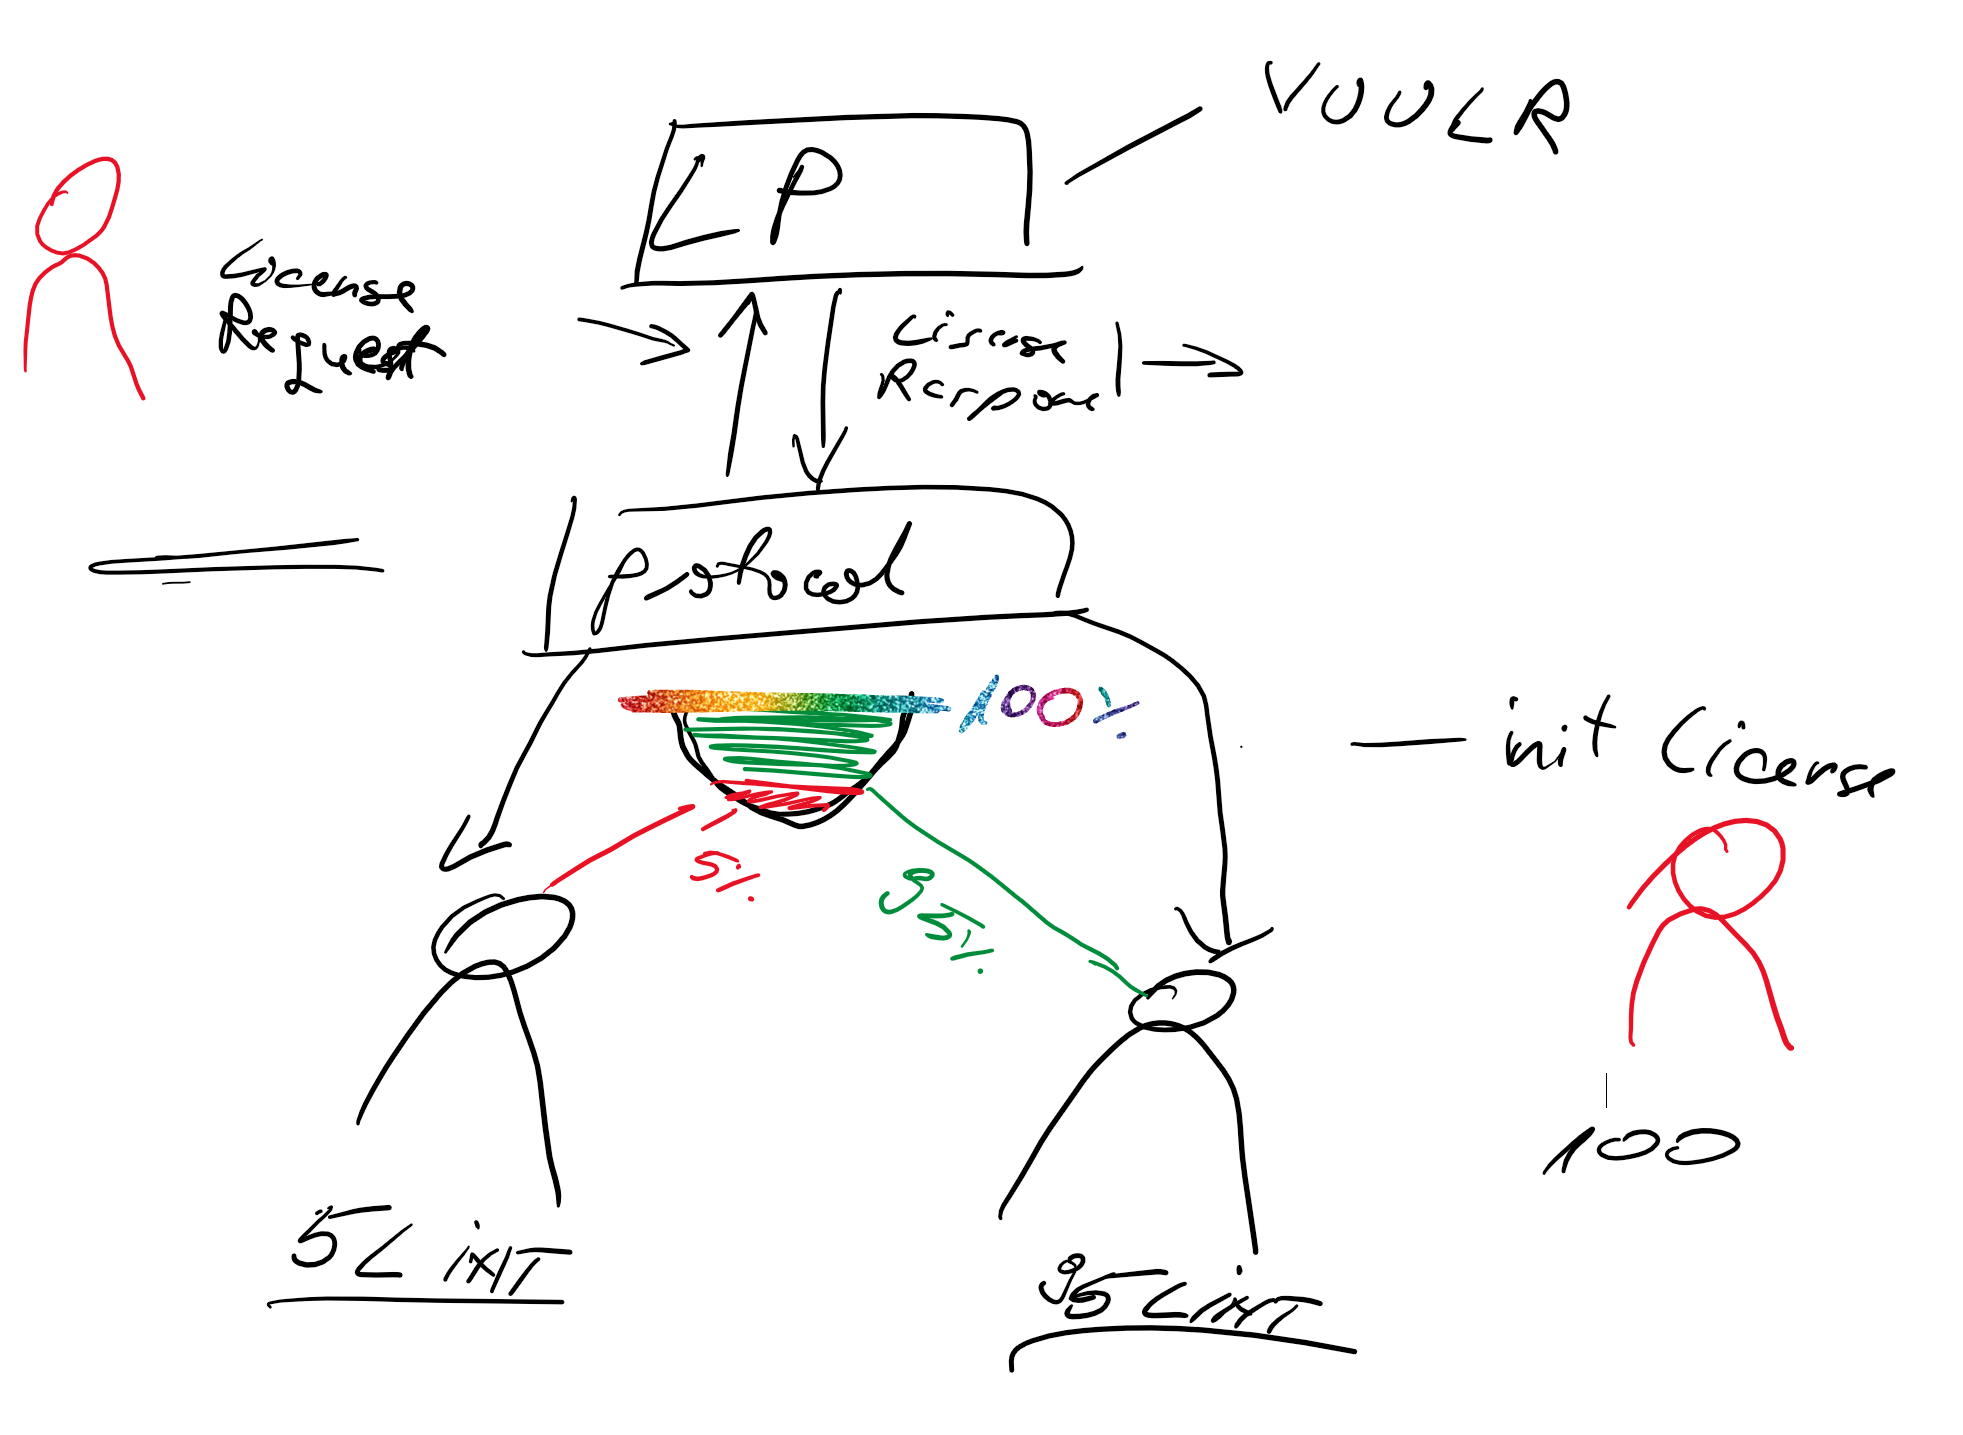 VUULR
LP
License
Request
Liscense
Response
protocol
100%
init License
5%
95%
100
5 LixIT
95 LixIT